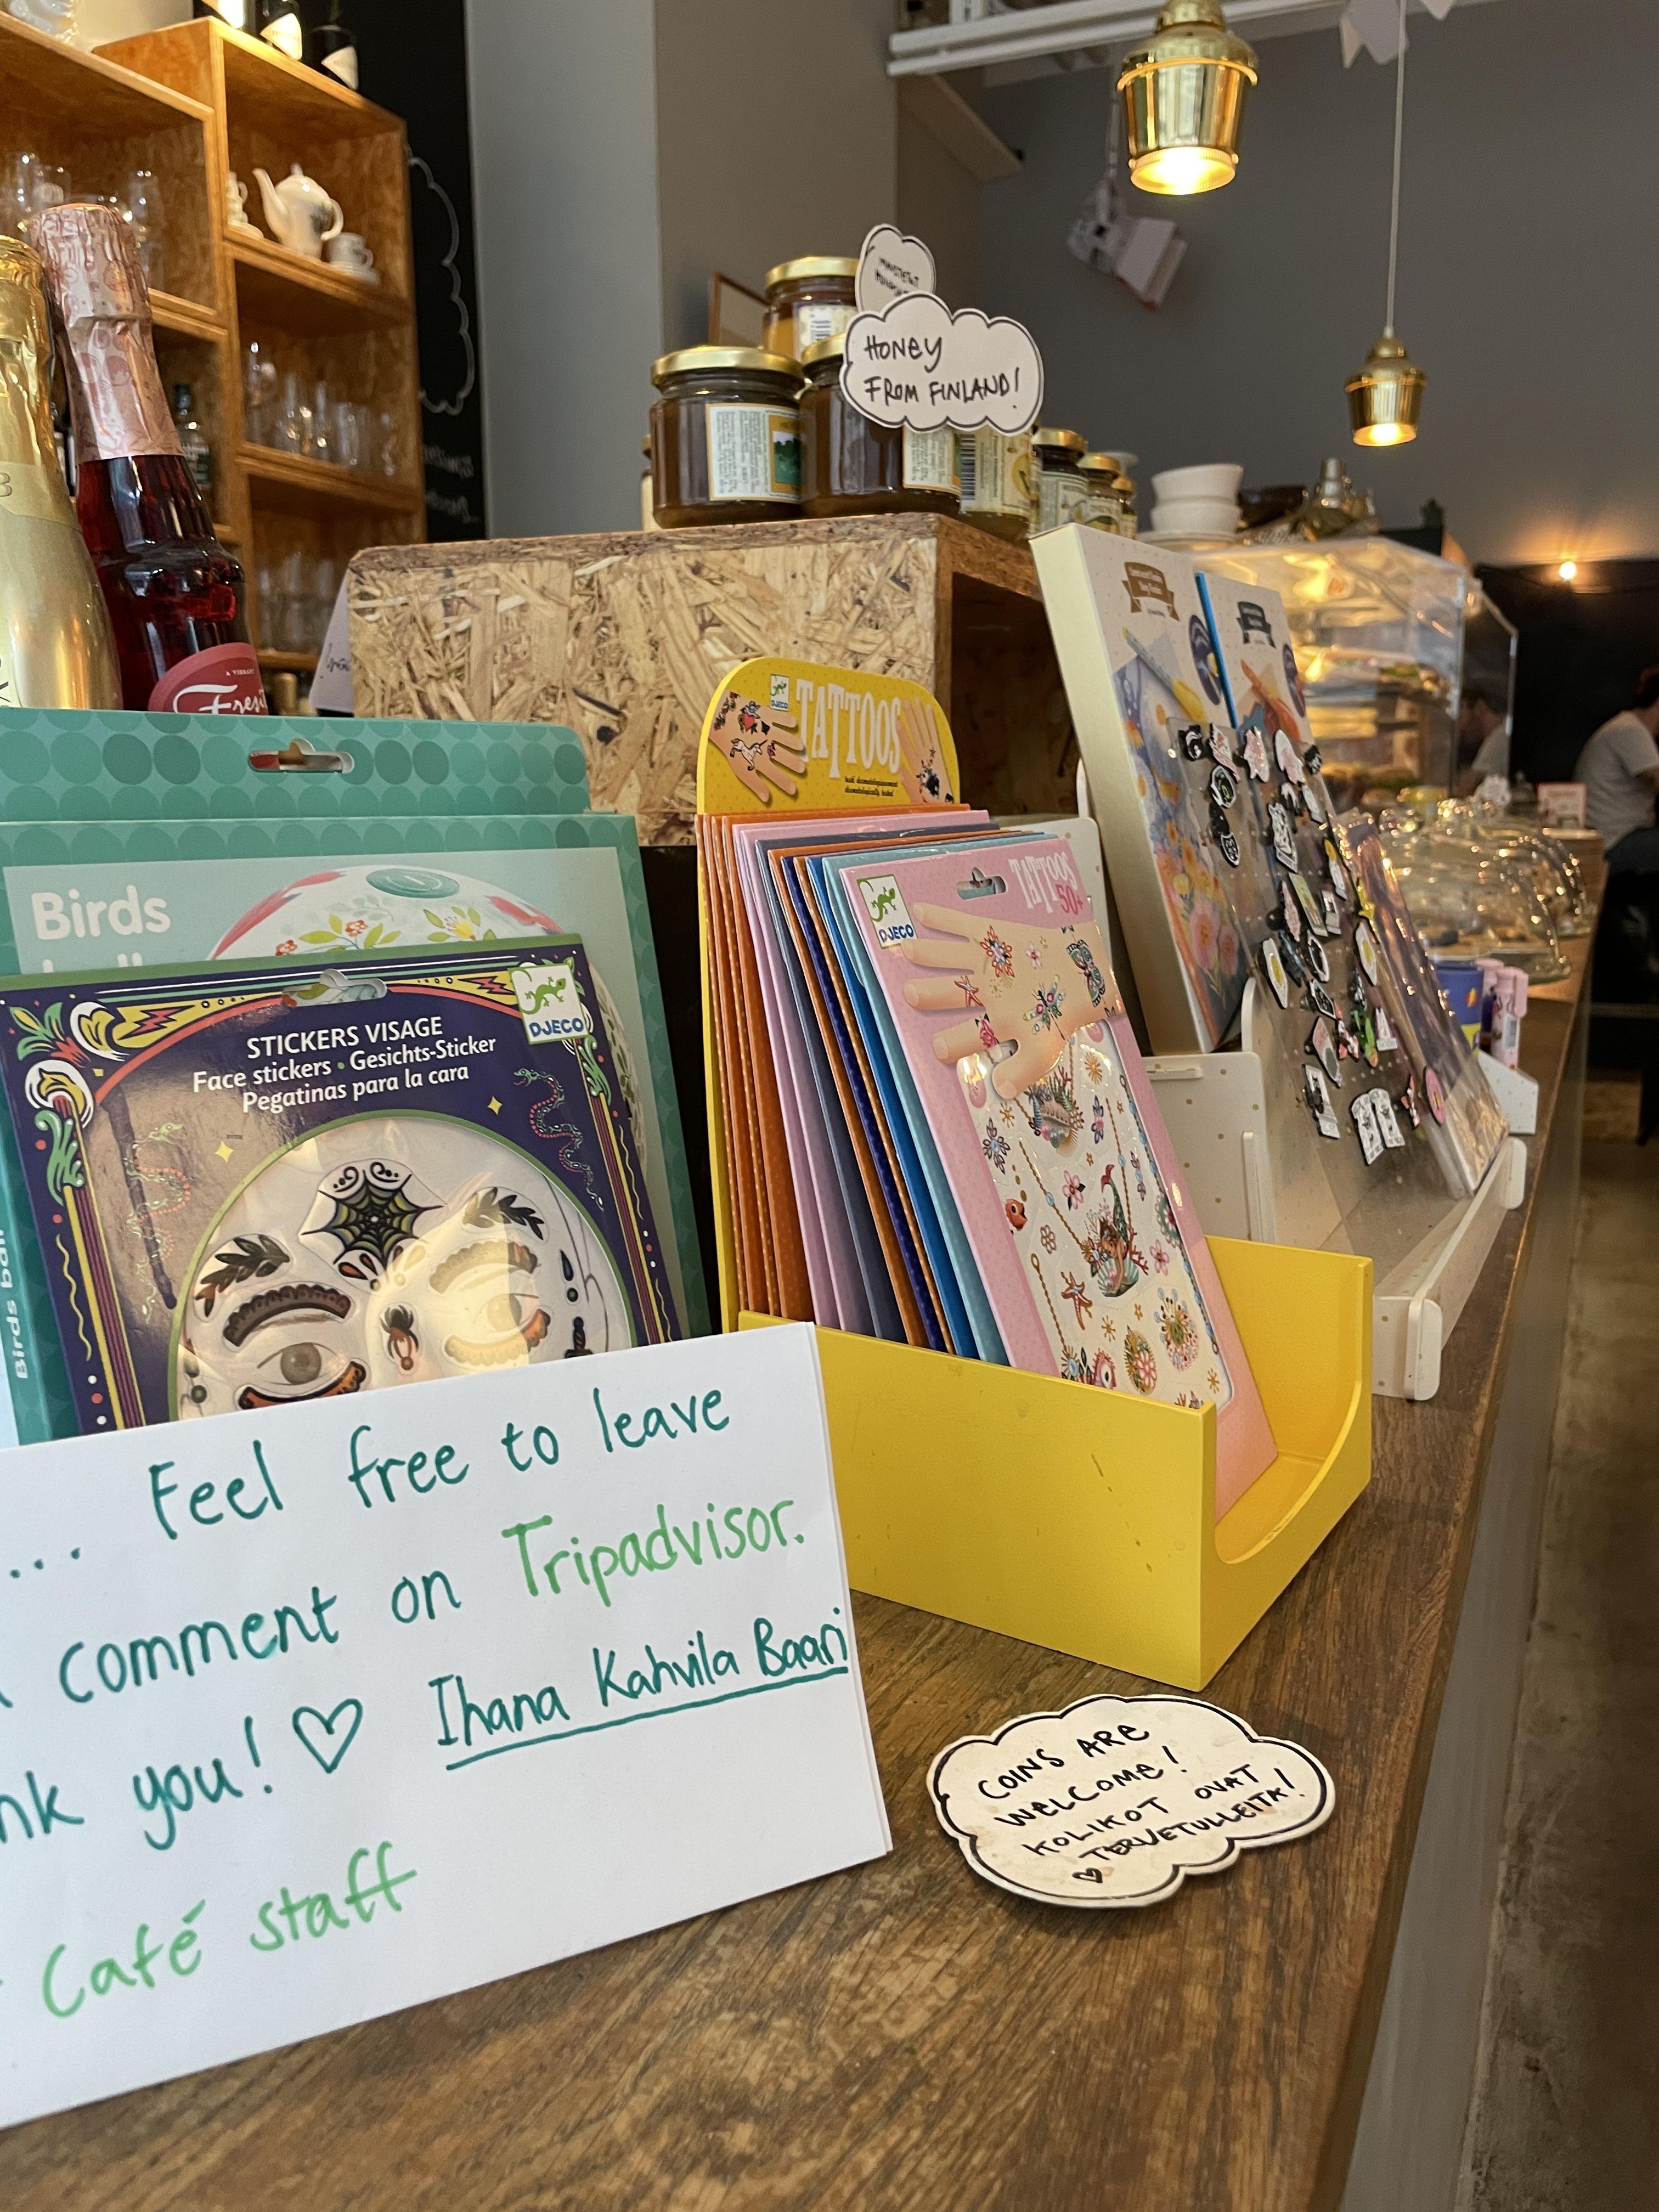 HONEY
FROM FINLAND!
A VERY
Fresi
TATTOOS
DJECO
TATTOOS
50+
DJECO
Birds
Birds ball
STICKERS VISAGE
Face stickers • Gesichts-Sticker
Pegatinas para la cara
DJECO
... Feel free to leave
comment on Tripadvisor.
you! ♡ Ihana Kahvila Baari
Café staff
COINS ARE
WELCOME!
KOLIKOT OVAT
TERVETULLEITA!
♡